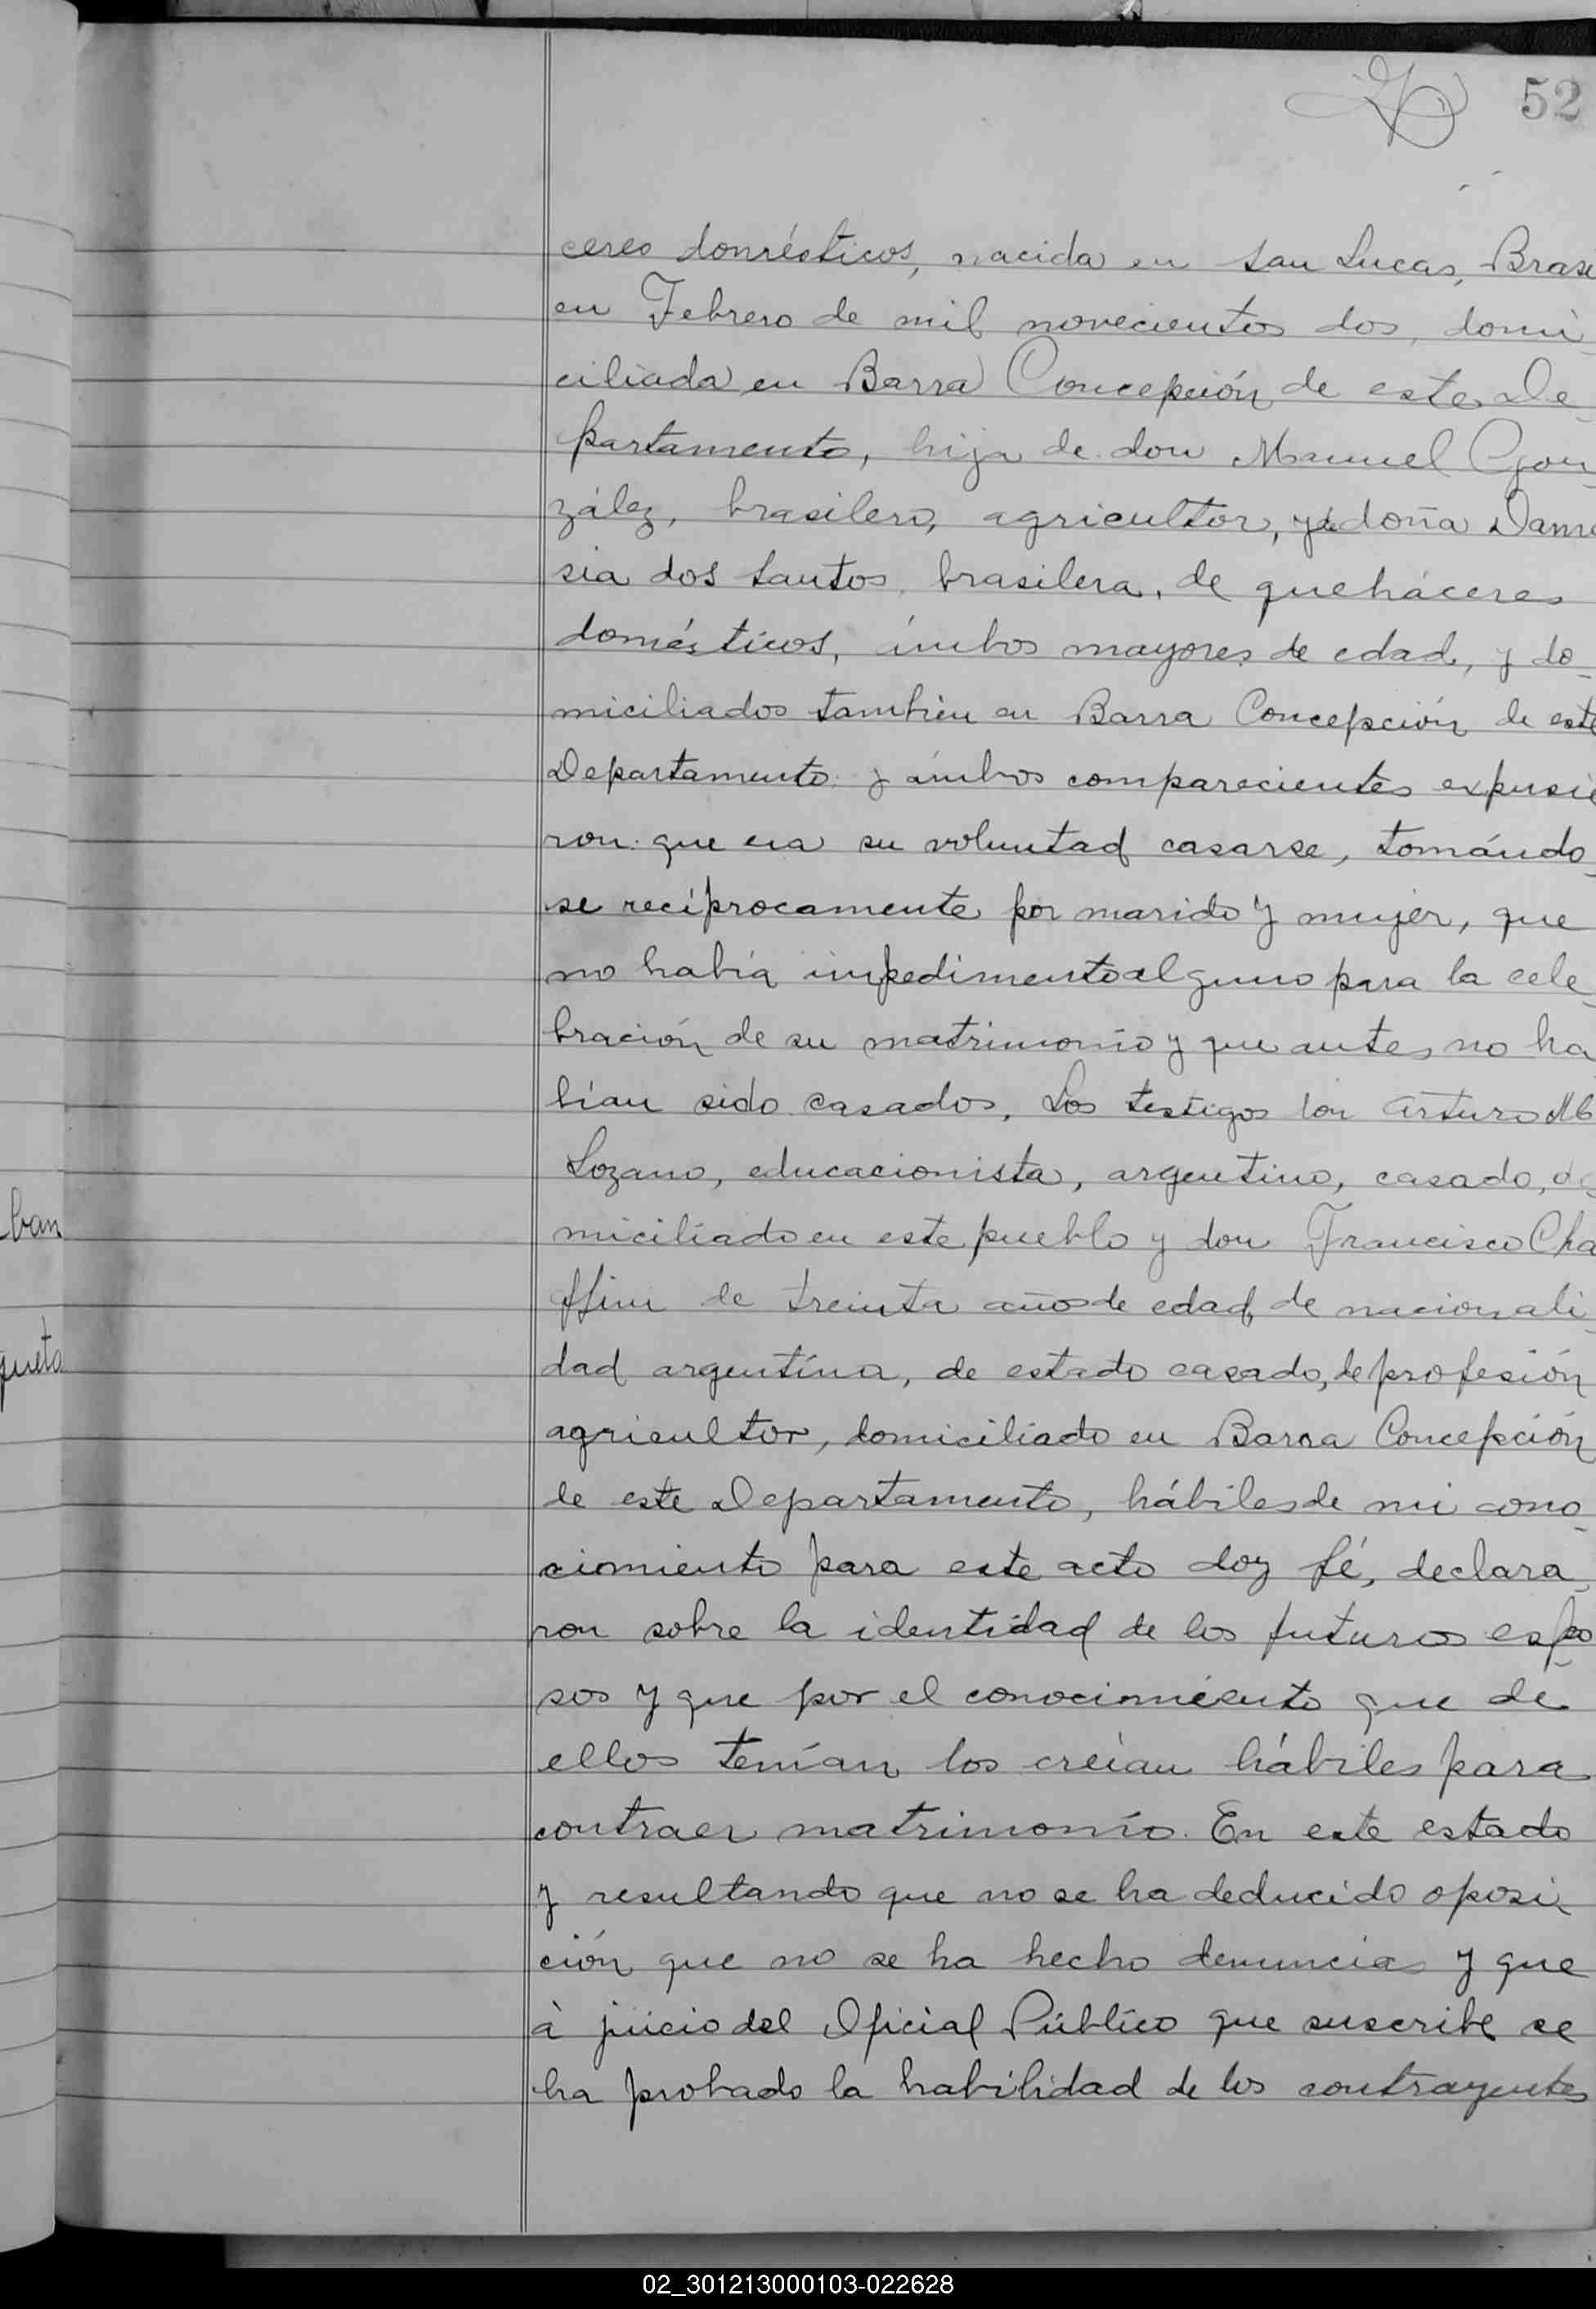 52
ceres domésticos, nacida en San Lucas, Brasi
en Febrero de mil novecientos dos, domi
ciliada en Barra Concepción de este De-
partamento, hija de don Manuel Gon-
zález, brasilero, agricultor, y de doña Dama
sia dos Santos, brasilera, de queháceres
domésticos, ámbos mayores de edad, y do-
miciliados también en Barra Concepción de este
Departamento y ámbos comparecientes expusie
ron: que era su voluntad casarse, tomándo-
se recíprocamente por marido y mujer, que
no había impedimento alguno para la cele-
bración de su matrimonio y que antes no ha
bían sido casados, Los testigos don Arturo M
Lozano, educacionista, argentino, casado, do
miciliado en este pueblo y don Francisco Cha
ffini de treinta años de edad, de nacionali-
dad argentina, de estado casado, de profesión
agricultor, domiciliado en Barra Concepción
de este Departamento, hábiles de mi cono-
cimiento para este acto doy fé, declara-
ron sobre la identidad de los futuros espo
sos y que por el conocimiento que de
ellos tenían los creían hábiles para
contraer matrimonio. En este estado
y resultando que no se ha deducido oposi-
ción que no se ha hecho denuncia y que
à juicio del Oficial Público que suscribe se
ha probado la habilidad de los contrayentes
ban
queta
02_301213000103-022628